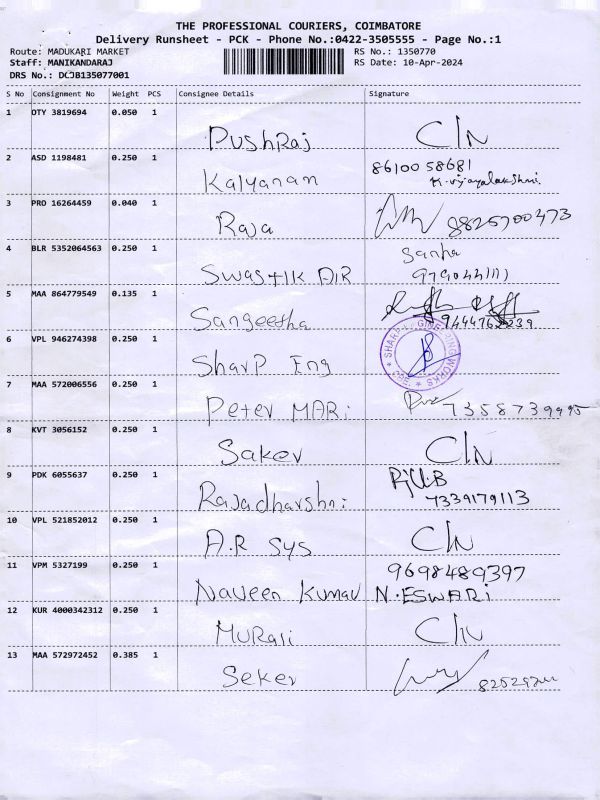 THE PROFESSIONAL COURIERS, COIMBATORE
Delivery Runsheet - PCK - Phone No.:0422-3505555 - Page No.:1
Route: MADUKARI MARKET RS No.: 1350770
Staff: MANIKANDARAJ RS Date: 10-Apr-2024
DRS No.: DCJB135077001
S No Consignment No Weight PCS Consignee Details Signature
1 OTY 3819694 0.050 1
PushRaj C/N
2 ASD 1198481 0.250 1 8610058681
Kalyanan K.vijayalakshmi.
3 PRO 16264459 0.040 1
Raja 8825700473
4 BLR 5352064563 0.250 1
SWASTIK AIR
5 MAA 864779549 0.135 1
Sangeetha
6 VPL 946274398 0.250 1
SharP Eng
7 MAA 572006556 0.250 1
Peter MARi
8 KVT 3056152 0.250 1
Saker C/N
9 PDK 6055637 0.250 1
Rajadharshni 7339179113
10 VPL 521852012 0.250 1
A.R SYS C/N
11 VPM 5327199 0.250 1 9698489397
Naveen Kumar N.ESWARi
12 KUR 4000342312 0.250 1
MURali C/N
13 MAA 572972452 0.385 1
Seker